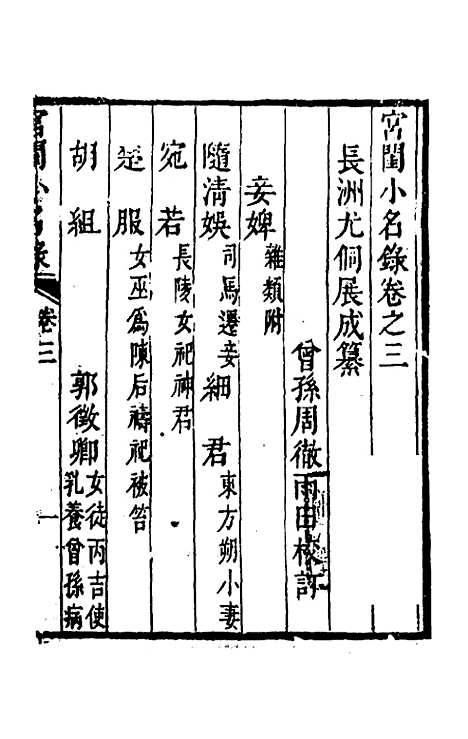 宮閨小名錄卷之三
長洲尤侗展成纂
曾孫周徹雨田校訂
妾婢雜類附
隨清娛司馬遷妾 細君東方朔小妻
宛若長陵女祀神君
楚服女巫爲陳后禱祀被笞
胡組 郭徵卿女徒丙吉使乳養曾孫病
宮閨小名錄 卷三 一